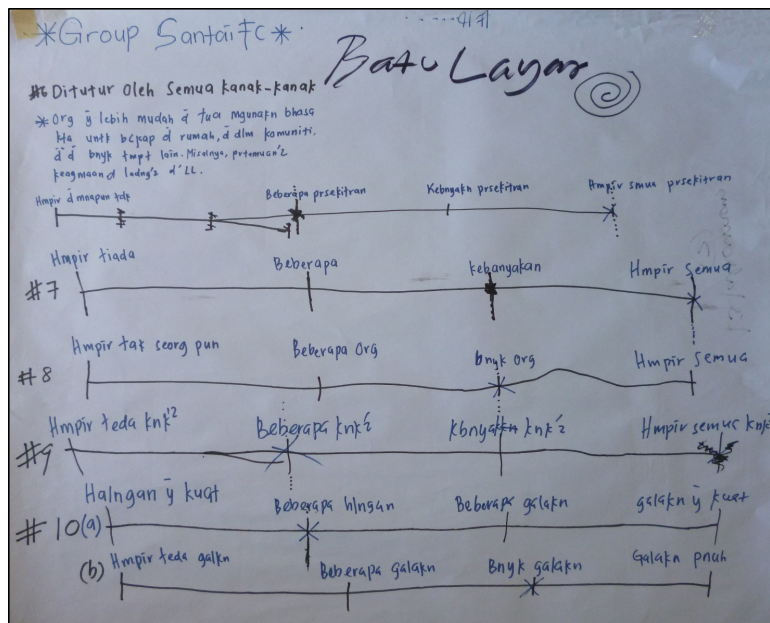 *Group Santai FC*
Batu Layar
#6 Ditutur Oleh Semua kanak-kanak
* Org ȳ lebih mudah d̄ tua mgunakn bhasa
kta untk bckap d̄ rumah, d̄ dlm komuniti.
d̄ d̄ bnyk tmpt lain. Misalnya, prtemuan'2
keagmaan d ladng'2 d' LL.
Hmpir d mnapun tdk
Beberapa prsekitran
Kebnyakn prsekitran
Hmpir smua prsekitran
#7
Hmpir tiada
Beberapa
kebanyakan
Hmpir Semua
#8
Hmpir tak seorg pun
Beberapa Org
bnyk org
Hmpir Semua
#9
Hmpir teda knk'2
Beberapa knk'2
kbnyakkn knk'2
Hmpir semua knk'
#10(a)
Halngan ȳ kuat
Beberapa hlngan
Beberapa galakn
galakn ȳ kuat
(b)
Hmpir teda galkn
Beberapa galakn
Bnyk galakn
Galakn pnuh